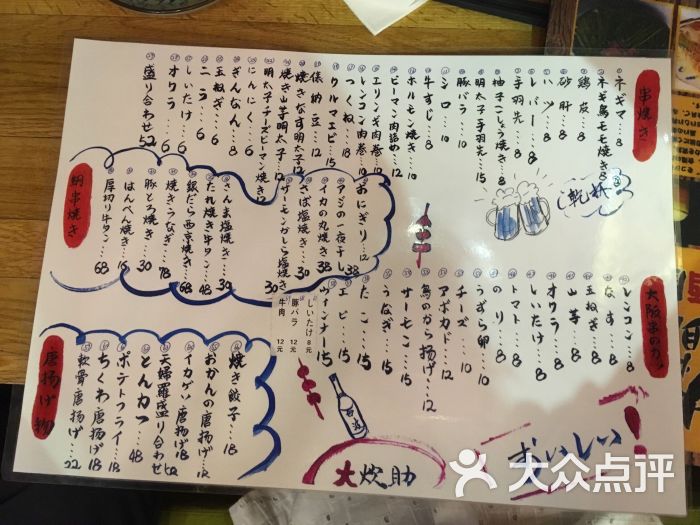 串焼き
ネギマ…8
ネギ鳥モモ焼き8
鶏皮…8
砂肝…8
ハツ…8
レバー…8
手羽先…8
柚子こしょう焼き8
明太子手羽先…15
豚バラ…10
シロ…10
牛すじ…8
ホルモン焼き…10
ピーマン肉詰め…12
エリンギ肉巻…10
レンコン肉巻…10
つくね…8
クルマエビ…15
俵納豆…12
焼きなす明太子12
焼き山芋明太子12
明太子チーズピーマン焼き12
にんにく…6
ぎんなん…6
玉ねぎ…6
ニラ…6
しいたけ…6
オクラ…6
盛り合わせ52
乾杯
網串焼き
おにぎり…12
アジの一夜干し38
イカの丸焼き38
さば塩焼き…30
サーモンかしら塩焼き30
さんま塩焼き…30
たれ焼き牛タン…48
銀だら西京焼き68
焼きうなぎ…78
豚とろ焼き…30
はんぺん焼き…16
厚切り牛タン…68
大阪串のカツ
レンコン…8
なす…8
玉ねぎ…8
山芋…8
オクラ…8
しいたけ…8
トマト…8
のり…8
うずら卵…10
チーズ…10
アボカド…12
鳥のから揚げ…12
サーモン…15
うなぎ…15
たこ…15
エビ…15
ウィンナー…15
しいたけ 8元
豚バラ 12元
牛肉 12元
唐揚げ物
焼き餃子…18
おかんの唐揚げ…18
イカゲソ唐揚げ18
天婦羅盛り合わせ
とんカツ…48
ポテトフライ…18
ちくわ唐揚げ18
軟骨唐揚げ…22
大炊助
おいしい！
大众点评